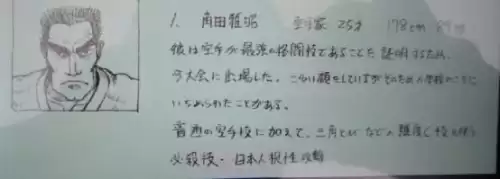 1. 角田雅泥 空手家 25才 178cm 89kg
彼は空手が最強の格闘技であることを証明するため、
今大会に出場した。こわい顔をしているがそのため小学校のころに
いじめられたことがある。
普通の空手技に加えて、三角とびなどの
必殺技・日本人根性攻撃